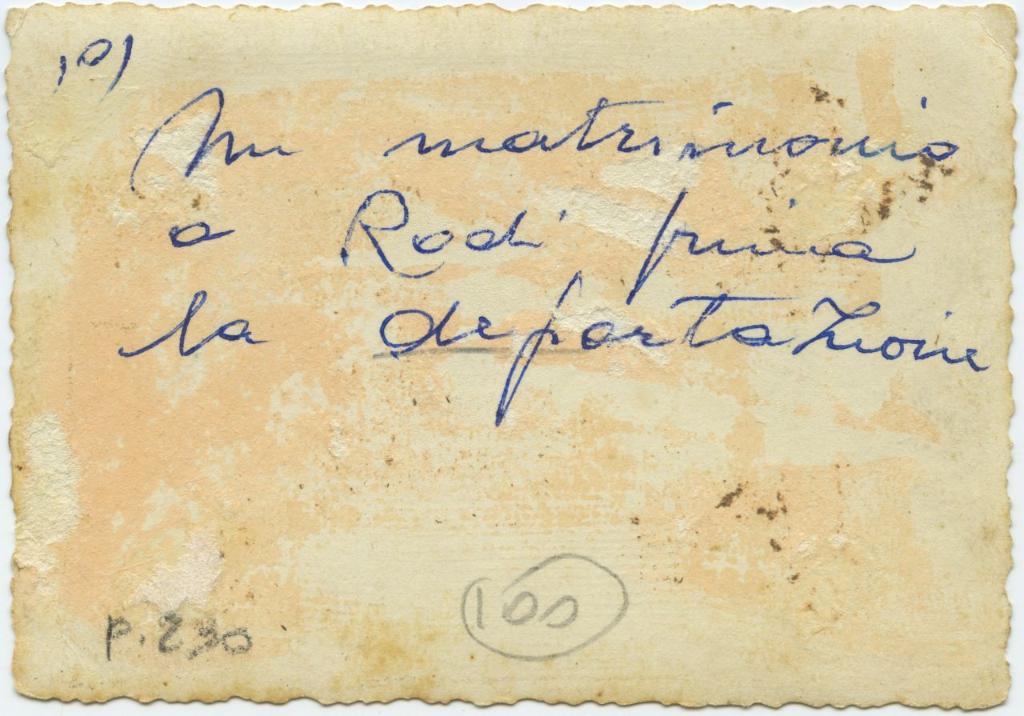 101
Un matrimonio
a Rodi prima
la deportazione
100
p. 230